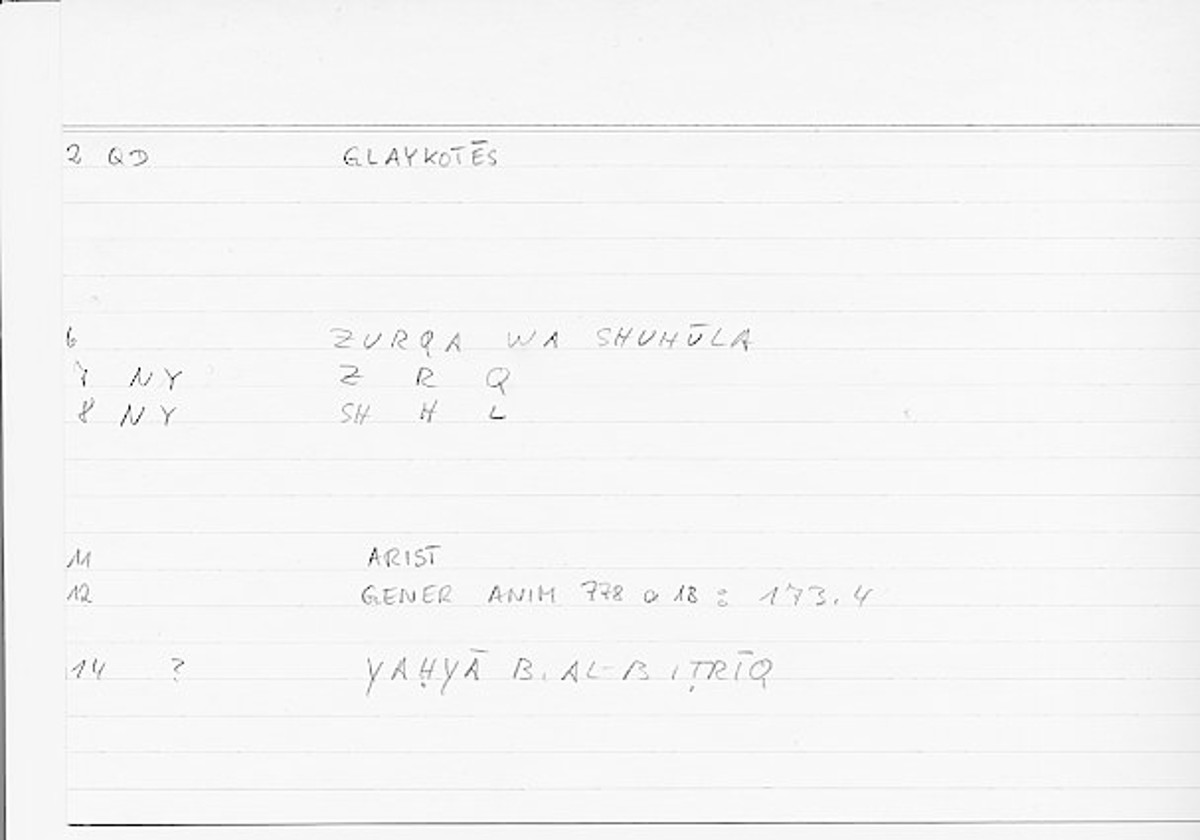 2 QD GLAYKOTĒS
6 ZURQA WA SHUHŪLA
7 NY Z R Q
8 NY SH H L
11 ARIST
12 GENER ANIM 778 a 18 : 173.4
14 ? YAḤYĀ B. AL-BIṬRĪQ